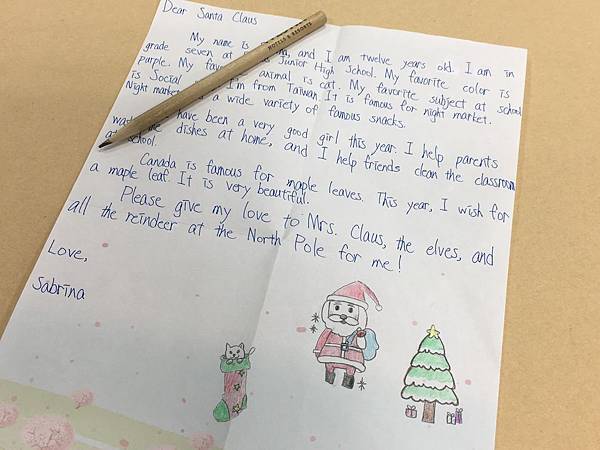 Dear Santa Claus
My name is and I am twelve years old. I am in
grade seven at Junior High School. My favorite color is
purple. My favorite animal is cat. My favorite subject at school
is Social I'm from Taiwan It is famous for night market.
Night market a wide variety of famous snacks.
have been a very good girl this year. I help parents
dishes at home, and I help friends clean the classroom
at school.
Canada is famous for maple leaves. This year, I wish for
a maple leaf. It is very beautiful.
Please give my love to Mrs. Claus, the elves, and
all the reindeer at the North Pole for me!
Love,
Sabrina
HOTELS & RESORTS